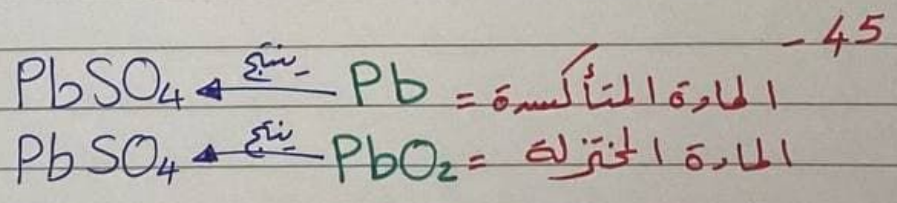 45 -
المادة المتأكسدة = Pb ينتج PbSO4
المادة المختزلة = PbO2 ينتج PbSO4